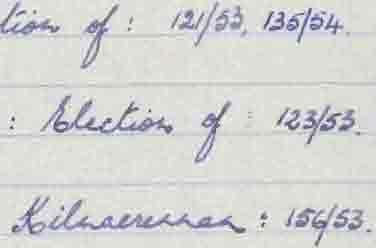 tion of : 121/53, 135/54.
: Election of : 123/53.
: 156/53.